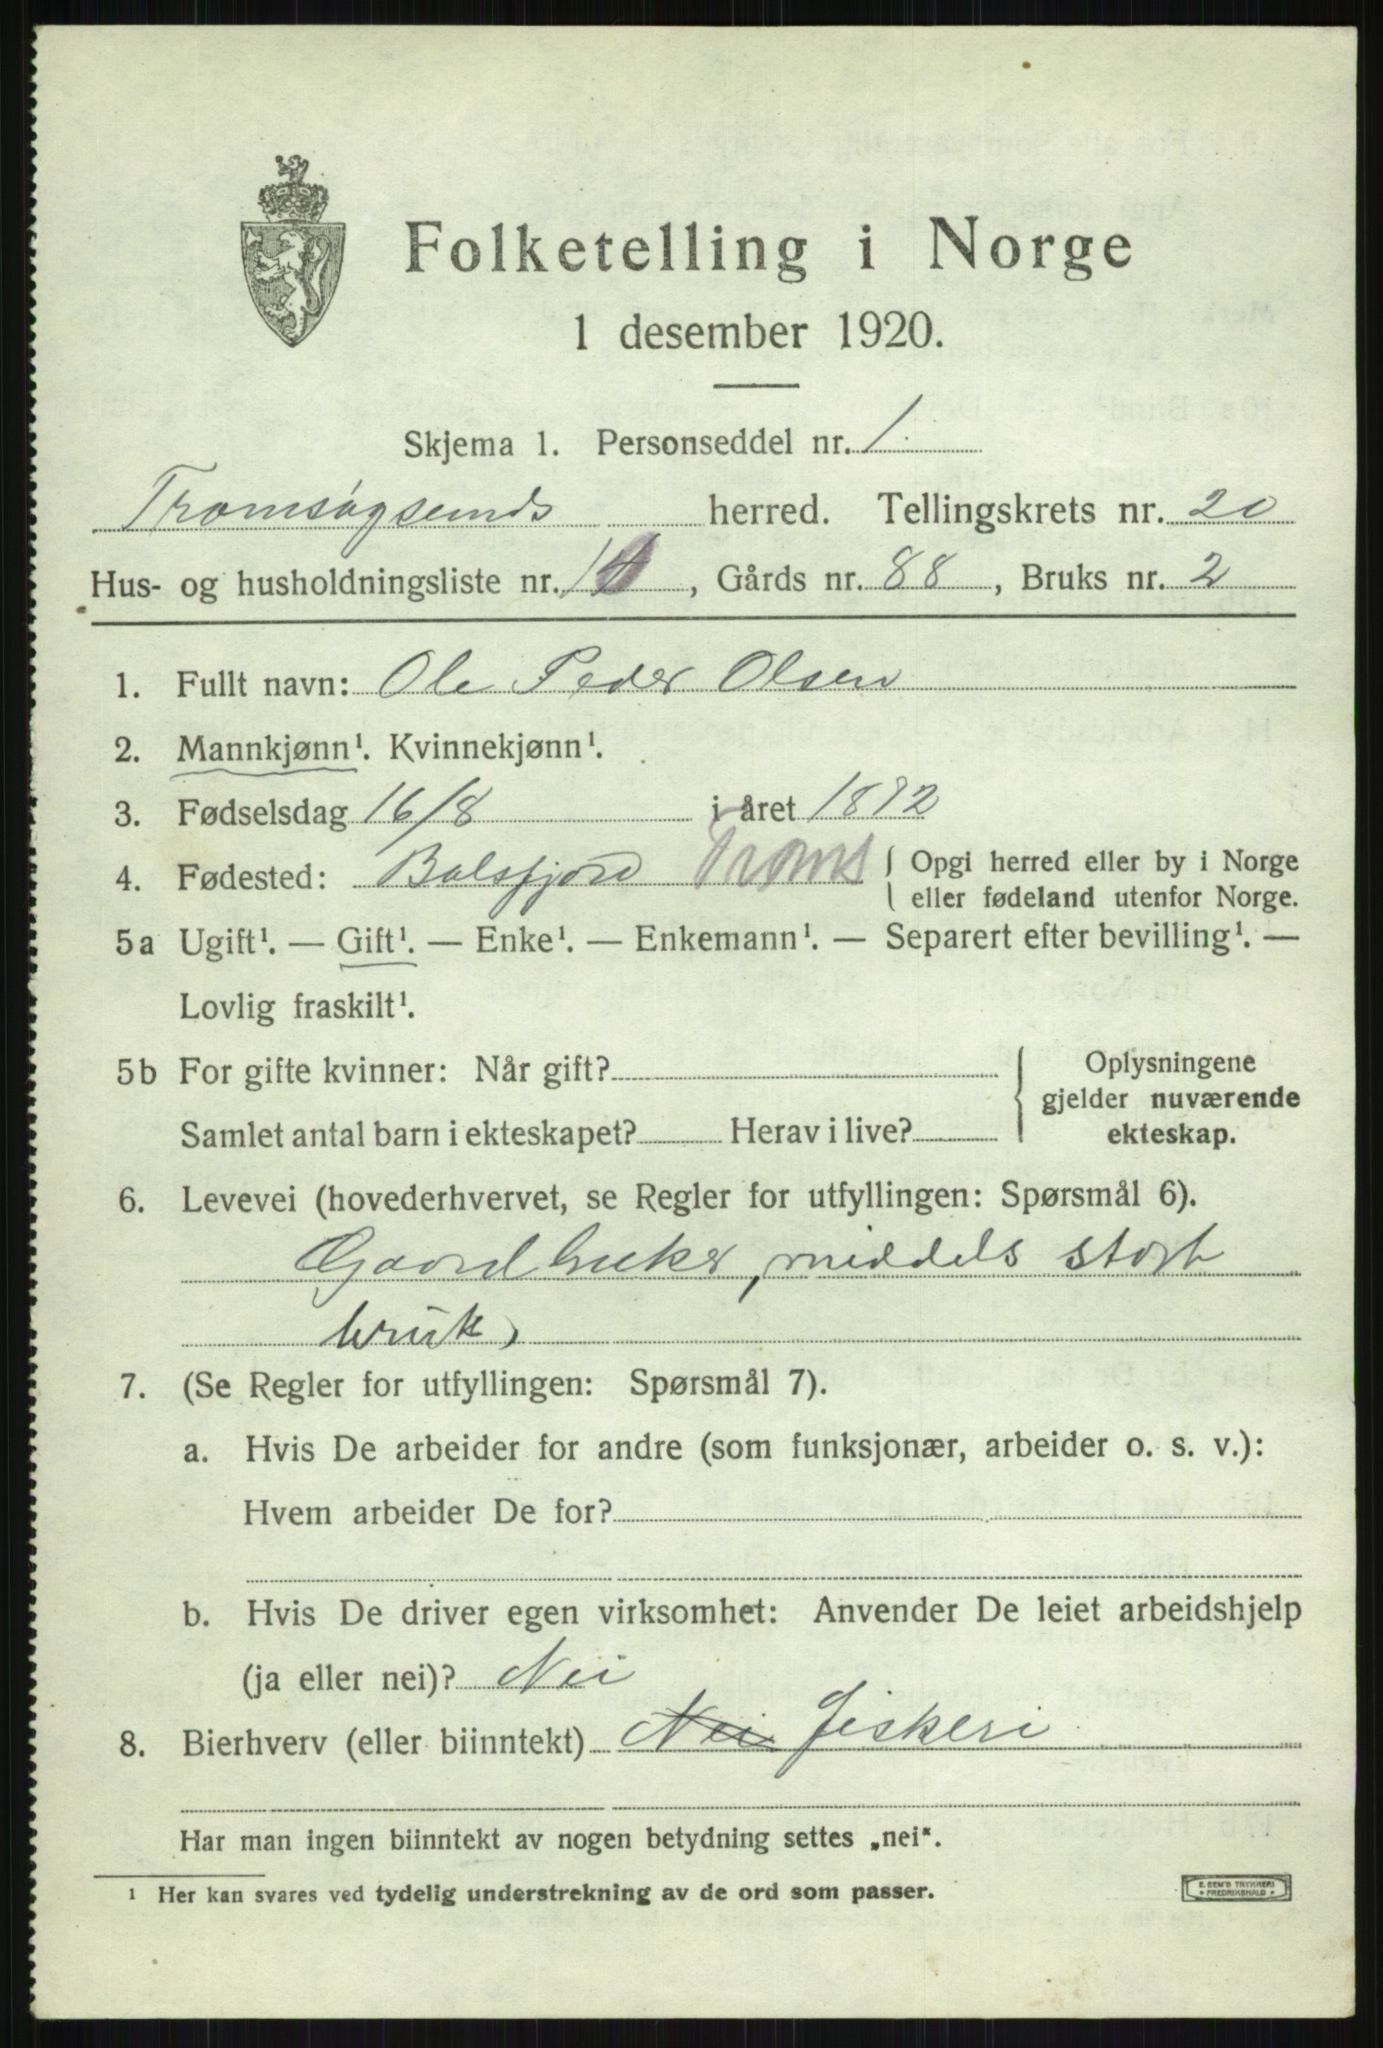 Folketelling i Norge
1 desember 1920.
Skjema 1. Personseddel nr. 1.
Tromsøysunds herred. Tellingskrets nr. 20
Hus- og husholdningsliste nr. , Gårds nr. 88, Bruks nr. 2
1. Fullt navn: Ole Peder Olsen
2. Mannkjønn¹. Kvinnekjønn¹.
3. Fødselsdag 16/8 i året 1872
4. Fødested: Balsfjord Troms { Opgi herred eller by i Norge
eller fødeland utenfor Norge.
5a Ugift¹. — Gift¹. — Enke¹. — Enkemann¹. — Separert efter bevilling¹. —
Lovlig fraskilt¹.
5b For gifte kvinner: Når gift?
Samlet antal barn i ekteskapet? Herav i live?
{ Oplysningene
gjelder nuværende
ekteskap.
6. Levevei (hovederhvervet, se Regler for utfyllingen: Spørsmål 6).
Gaardbruker, middels stort
bruk,
7. (Se Regler for utfyllingen: Spørsmål 7).
a. Hvis De arbeider for andre (som funksjonær, arbeider o. s. v.):
Hvem arbeider De for?
b. Hvis De driver egen virksomhet: Anvender De leiet arbeidshjelp
(ja eller nei)? Nei
8. Bierhverv (eller biinntekt) Nei Fiskeri
Har man ingen biinntekt av nogen betydning settes „nei“.
¹ Her kan svares ved tydelig understrekning av de ord som passer.
E. SEM'S TRYKKERI
FREDRIKSHALD